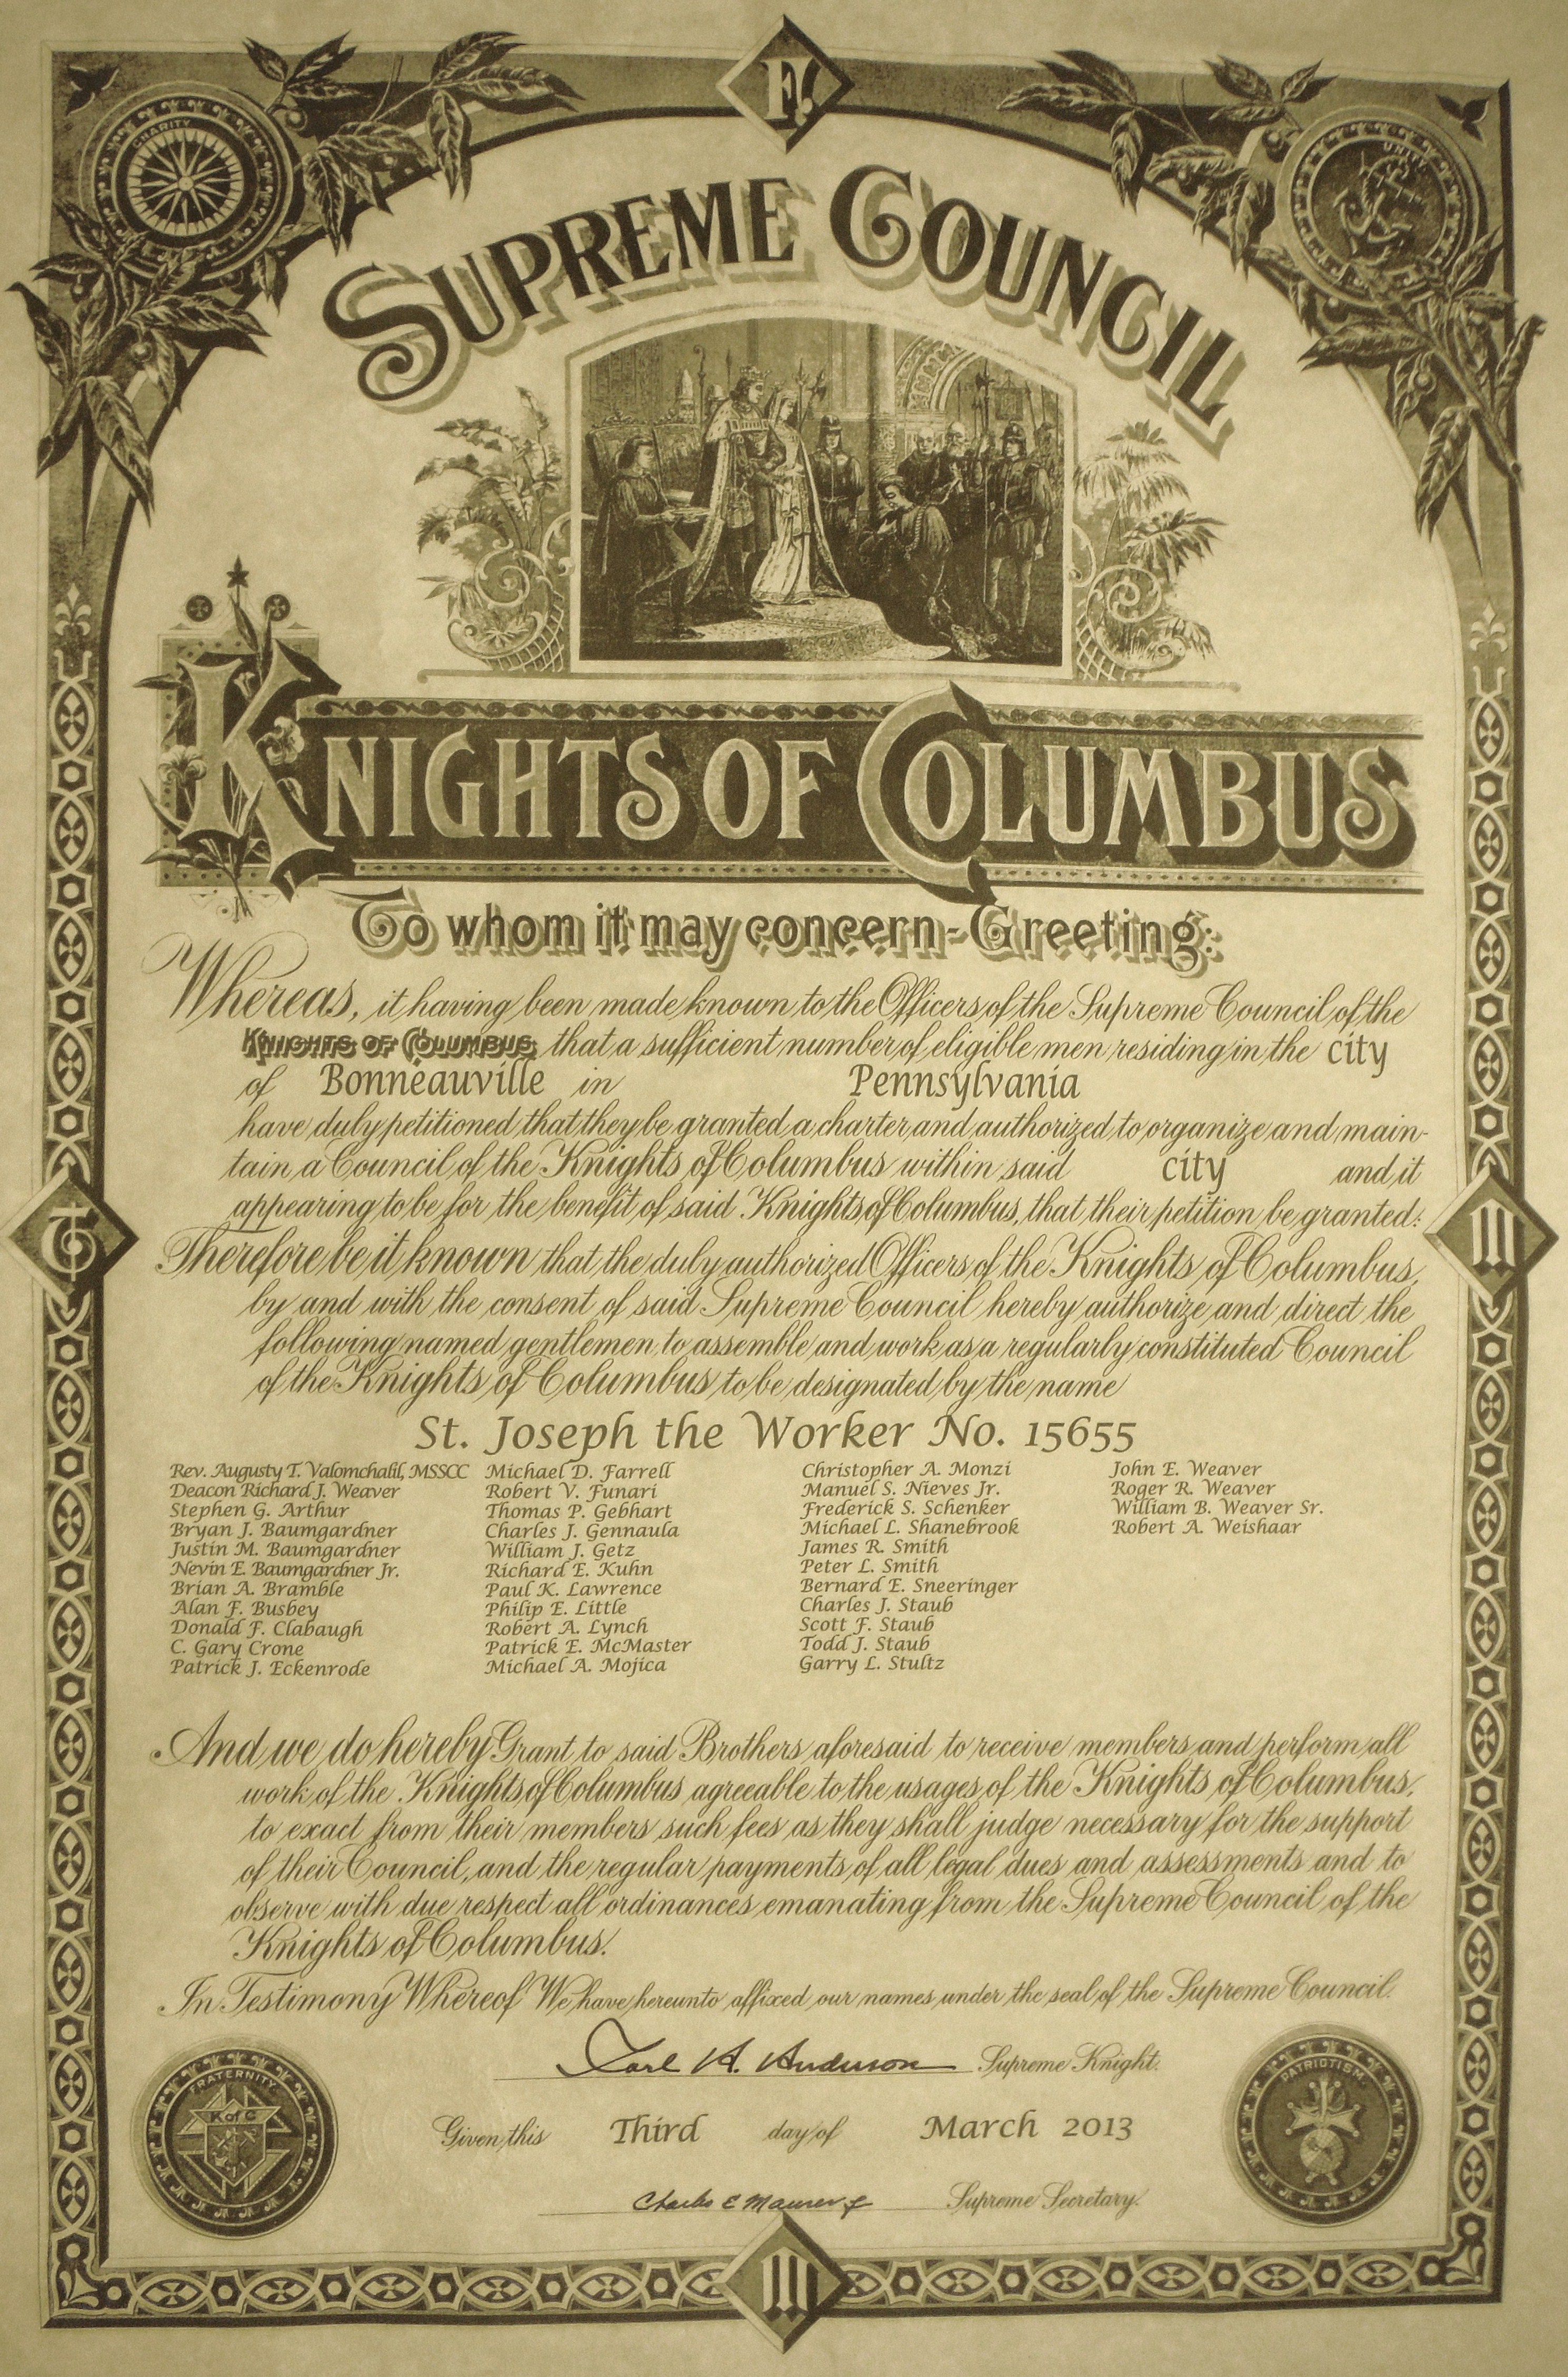 F.
CHARITY
UNITY
SUPREME COUNCIL
KNIGHTS OF COLUMBUS
To whom it may concern-Greeting:
Whereas, it having been made known to the Officers of the Supreme Council of the
KNIGHTS OF COLUMBUS that a sufficient number of eligible men residing in the city
of Bonneauville in Pennsylvania
have duly petitioned that they be granted a charter and authorized to organize and main-
tain a Council of the Knights of Columbus within said city and it
appearing to be for the benefit of said Knights of Columbus, that their petition be granted:
Therefore be it known that the duly authorized Officers of the Knights of Columbus,
by and with the consent of said Supreme Council hereby authorize and direct the
following named gentlemen to assemble and work as a regularly constituted Council
of the Knights of Columbus to be designated by the name
St. Joseph the Worker No. 15655
Rev. Augusty T. Valomchalil, MSSCC
Deacon Richard J. Weaver
Stephen G. Arthur
Bryan J. Baumgardner
Justin M. Baumgardner
Nevin E. Baumgardner Jr.
Brian A. Bramble
Alan F. Busbey
Donald F. Clabaugh
C. Gary Crone
Patrick J. Eckenrode
Michael D. Farrell
Robert V. Funari
Thomas P. Gebhart
Charles J. Gennaula
William J. Getz
Richard E. Kuhn
Paul K. Lawrence
Philip E. Little
Robert A. Lynch
Patrick E. McMaster
Michael A. Mojica
Christopher A. Monzi
Manuel S. Nieves Jr.
Frederick S. Schenker
Michael L. Shanebrook
James R. Smith
Peter L. Smith
Bernard E. Sneeringer
Charles J. Staub
Scott F. Staub
Todd J. Staub
Garry L. Stultz
John E. Weaver
Roger R. Weaver
William B. Weaver Sr.
Robert A. Weishaar
And we do hereby Grant to said Brothers aforesaid to receive members and perform all
work of the Knights of Columbus agreeable to the usages of the Knights of Columbus,
to exact from their members such fees as they shall judge necessary for the support
of their Council, and the regular payments of all legal dues and assessments and to
observe with due respect all ordinances emanating from the Supreme Council of the
Knights of Columbus.
In Testimony Whereof We have hereunto affixed our names under the seal of the Supreme Council.
Carl A. Anderson Supreme Knight.
FRATERNITY
K of C
PATRIOTISM
Given this Third day of March 2013
Charles E Maurer Jr Supreme Secretary.